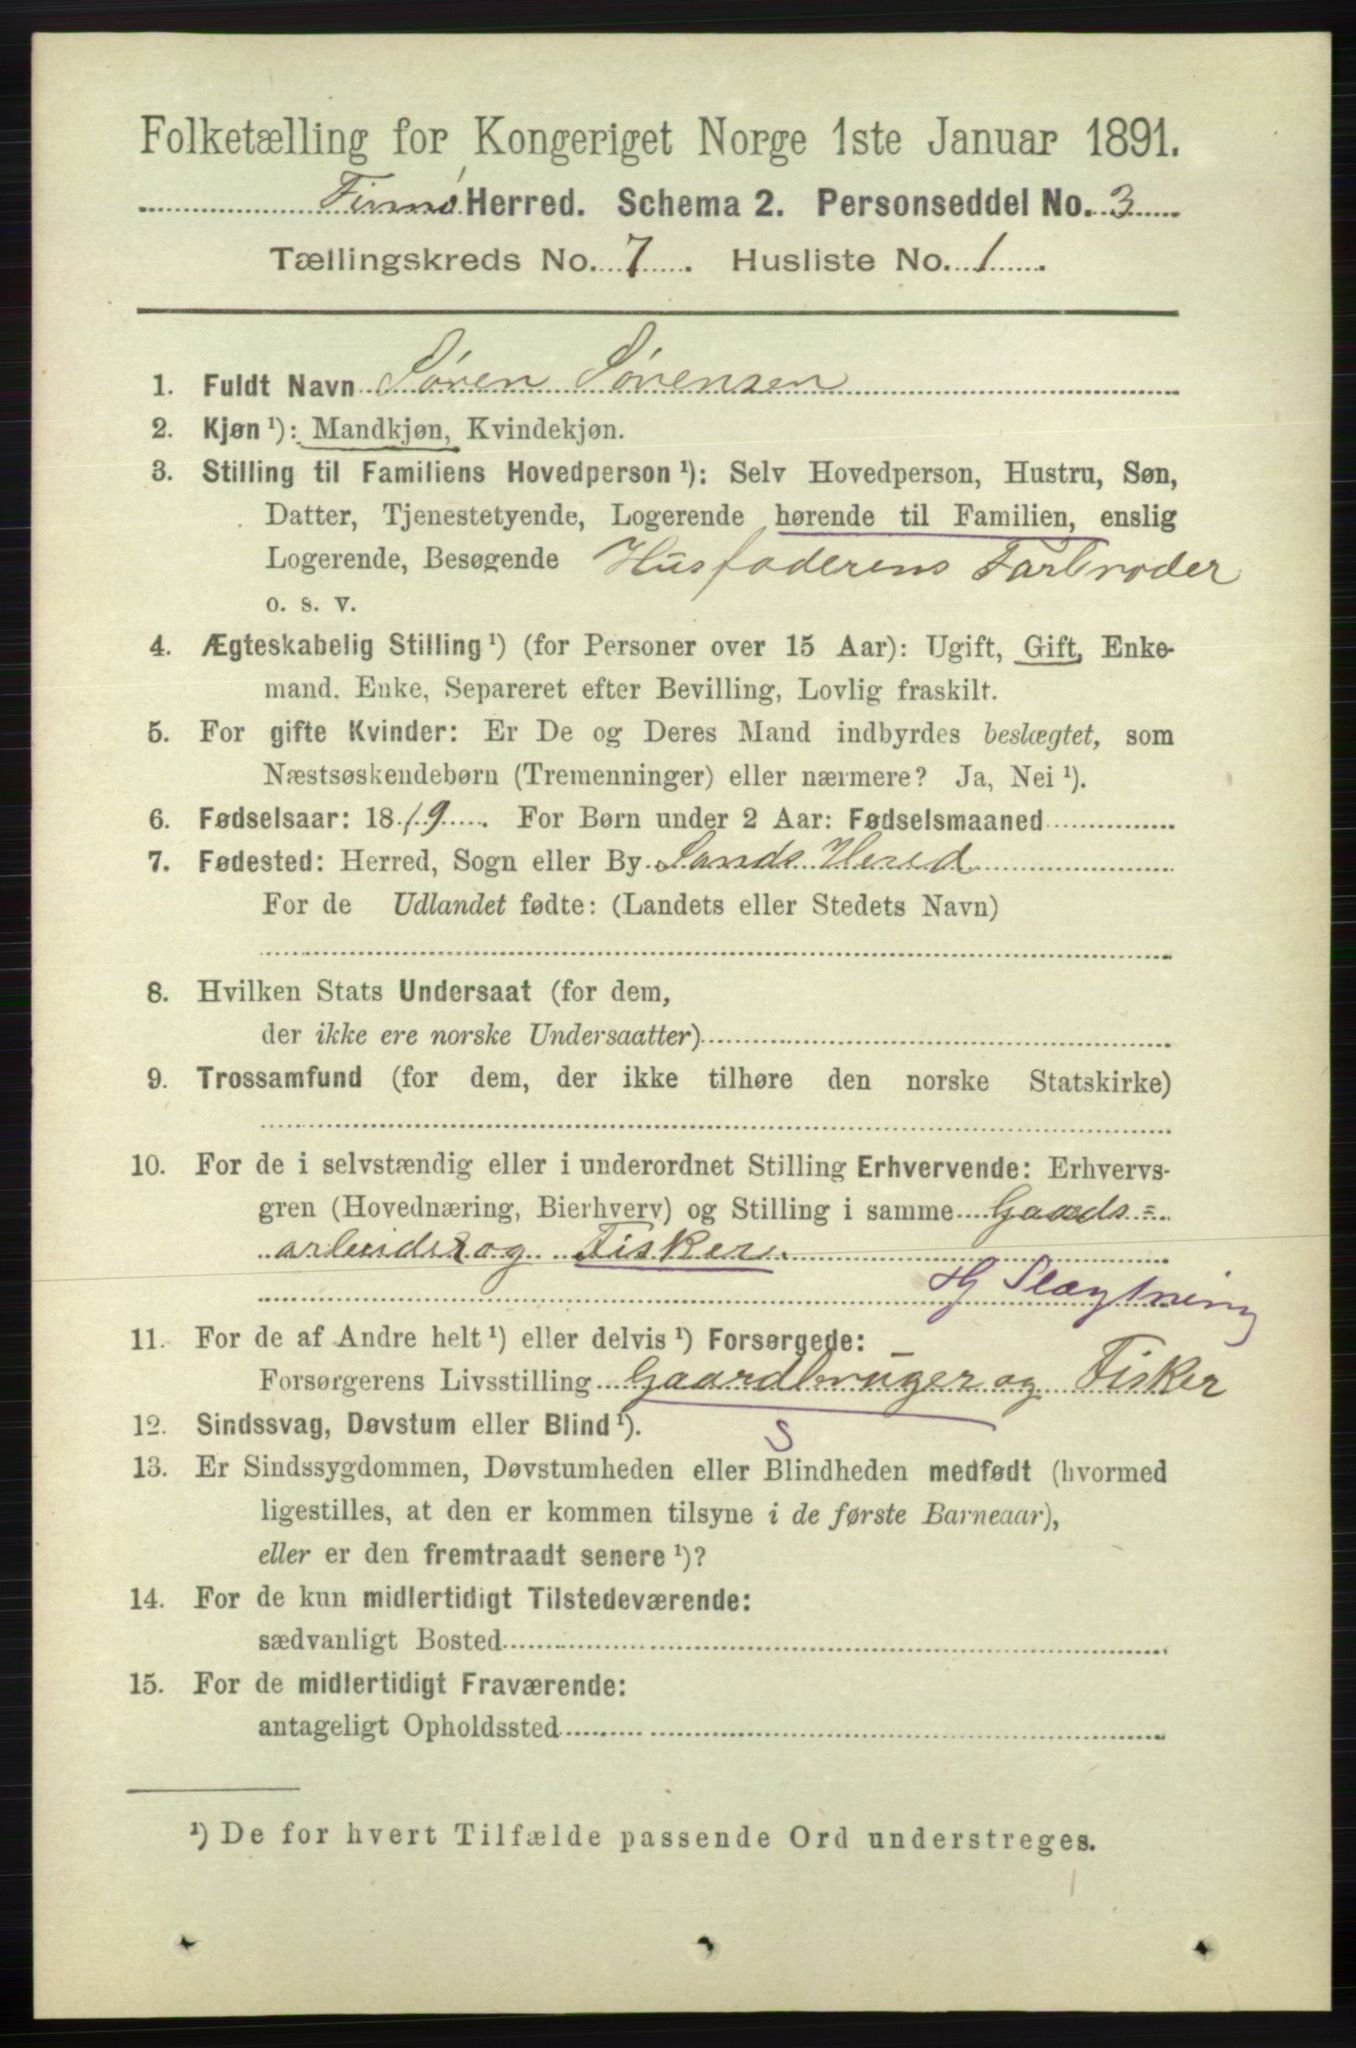 Folketælling for Kongeriget Norge 1ste Januar 1891.
Finnø Herred. Schema 2. Personseddel No. 3
Tællingskreds No. 7. Husliste No. 1
1. Fuldt Navn Søren Sørensen
2. Kjøn ¹): Mandkjøn, Kvindekjøn.
3. Stilling til Familiens Hovedperson ¹): Selv Hovedperson, Hustru, Søn,
Datter, Tjenestetyende, Logerende hørende til Familien, enslig
Logerende, Besøgende Husfaderens Farbroder
o. s. v.
4. Ægteskabelig Stilling ¹) (for Personer over 15 Aar): Ugift, Gift, Enke-
mand, Enke, Separeret efter Bevilling, Lovlig fraskilt.
5. For gifte Kvinder: Er De og Deres Mand indbyrdes beslægtet, som
Næstsøskendebørn (Tremenninger) eller nærmere? Ja, Nei ¹).
6. Fødselsaar: 1819. For Børn under 2 Aar: Fødselsmaaned
7. Fødested: Herred, Sogn eller By Sands Hered
For de Udlandet fødte: (Landets eller Stedets Navn)
8. Hvilken Stats Undersaat (for dem,
der ikke ere norske Undersaatter)
9. Trossamfund (for dem, der ikke tilhøre den norske Statskirke)
10. For de i selvstændig eller i underordnet Stilling Erhvervende: Erhvervs-
gren (Hovednæring, Bierhverv) og Stilling i samme Gaards=
arbeider og Fisker.
Slægtning
11. For de af Andre helt ¹) eller delvis ¹) Forsørgede:
Forsørgerens Livsstilling Gaardbruger og Fisker
12. Sindssvag, Døvstum eller Blind ¹). S
13. Er Sindssygdommen, Døvstumheden eller Blindheden medfødt (hvormed
ligestilles, at den er kommen tilsyne i de første Barneaar),
eller er den fremtraadt senere ¹)?
14. For de kun midlertidigt Tilstedeværende:
sædvanligt Bosted
15. For de midlertidigt Fraværende:
antageligt Opholdssted
¹) De for hvert Tilfælde passende Ord understreges.